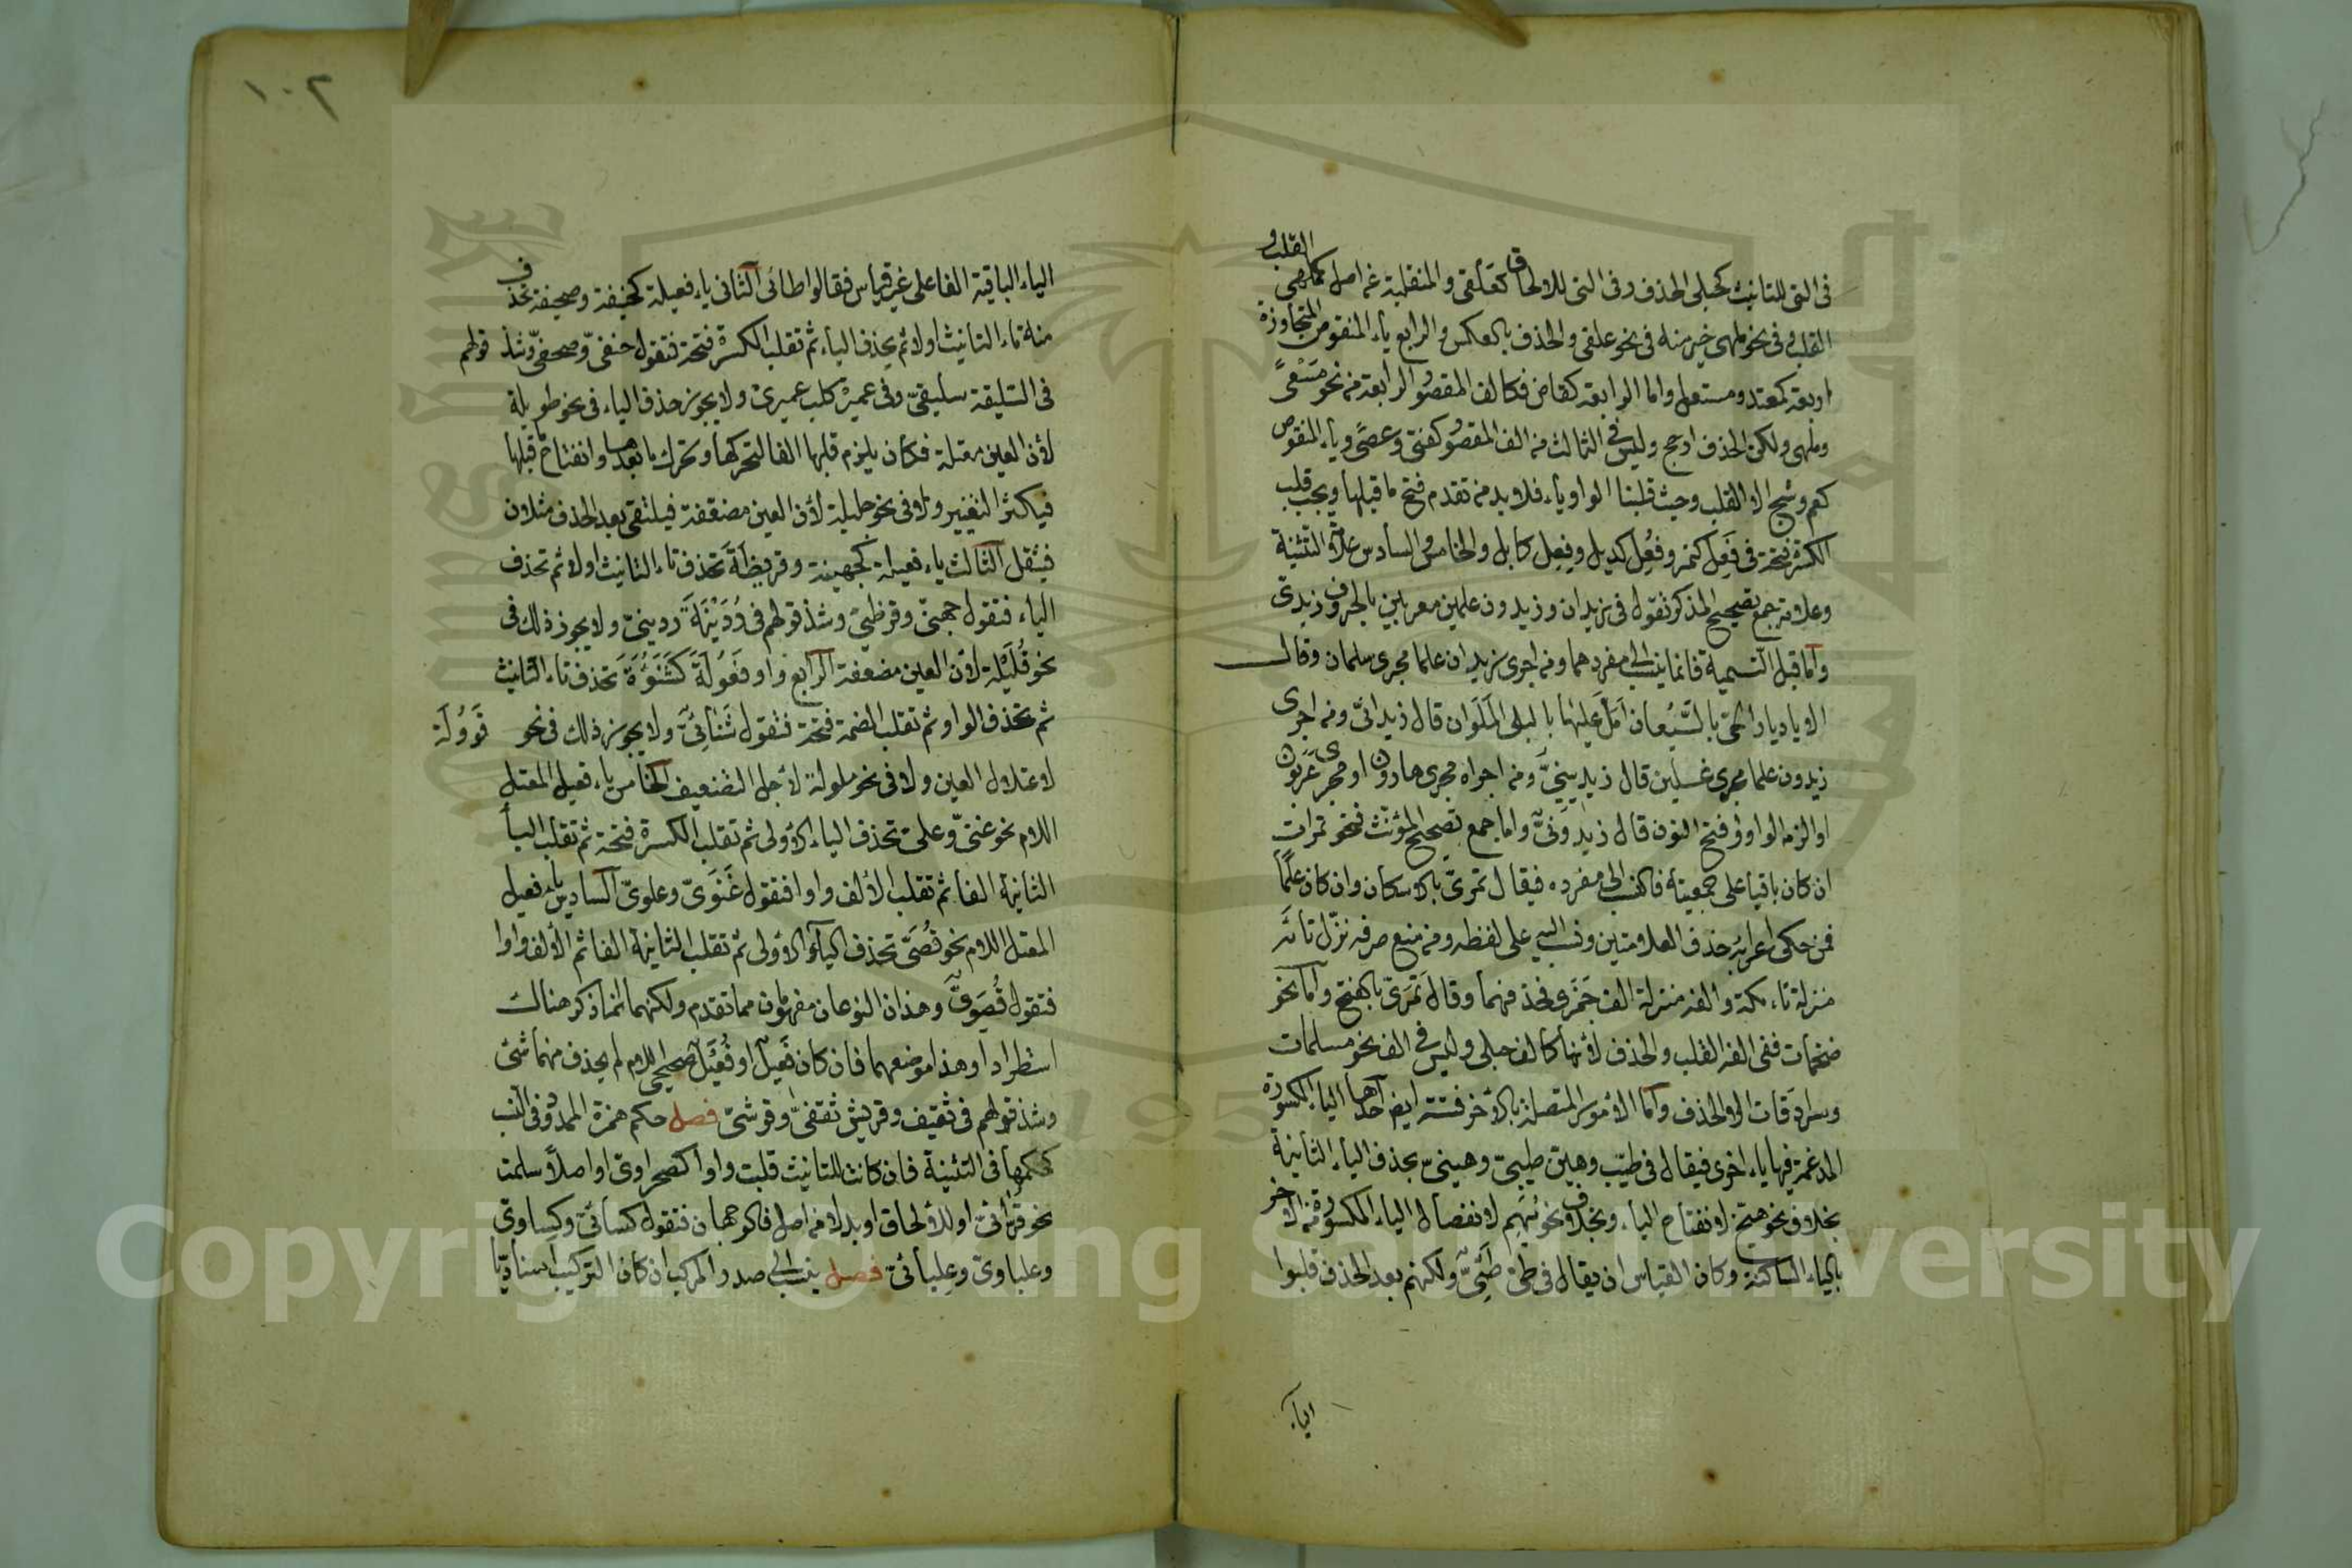 فى التى للتانيث كحبلى الحذف وفى التى للالحاق كعلقى والمنقلبة عن اصل كملهى القلب و
القلب فى نحو ملهى خير منه فى نحو علقى والحذف بالعكس والرابع ياء المنقوص المتجاوزة
اربعة كمعتد ومستعل واما الرابعة كقاض فكالف المقصور الرابعة من نحو مسعى
وملهى ولكن الحذف ارجح وليس فى الثالث من الف المقصور كفتى وعصى وياء المنقوص
كعم وشج الا القلب وحيث قلبنا الواو ياء فلا بد من تقدم فتح ما قبلها ويجب قلب
الكسرة فتحة فى فَعِل كنمر وفُعِل كديل وفِعِل كابل والخامس والسادس علامة التثنية
وعلامة جمع تصحيح المذكر تقول فى زيدان وزيدون علمين معربين بالحروف زيدى
وأما قبل التسمية فانما ينسب الى مفردهما ومن اجرى زيدان علما مجرى سلمان وقال
الا يا ديار الحى بالسَّبُعان اَمَلَّ عليها بالبلى المَلَوان قال زيدانىّ ومن اجرى
زيدون علما مجرى غسلين قال زيدينيّ ومن اجراه مجرى هارون او مجرى عَرَبون
او الزمه الواو وفتح النون قال زيدونىّ واما جمع تصحيح المؤنث فنحو تمرات
ان كان باقيا على جمعيته فالنسب الى مفرده فيقال تمرىّ بالاسكان وان كان علمًا
فمن حكى اعرابه حذف العلامتين ونسب اليه على لفظه ومن منع صرفه نزّل تائه
منزلة تاء مكة والفه منزلة الف جَمَزى فحذفهما وقال تَمَرىّ بالفتح وأما نحو
ضخمات ففى الفه القلب والحذف لأنها كالف حبلى وليس فى الف نحو مسلمات
وسرادقات الا الحذف وأما الأمور المتصلة بالأخر فستة ايضا احدها الياء المكسورة
المدغمة فيها ياء اخرى فيقال فى طيّب وهيّن طيبىّ وهينىّ بحذف الياء الثانية
بخلاف نحو هبيّخ لانفتاح الياء وبخلاف نحو مُهَيِّم لانفصال الياء المكسورة من الاخر
بالياء الساكنة وكان القياس ان يقال فى طىّ طَيْئىّ ولكنهم بعد الحذف قلبوا
الياء
١٠٢
الياء الباقية الفا على غير قياس فقالوا طائى الثانى ياء فعيلة كحنيفة وصحيفة تحذف
منه تاء التانيث اولا ثم يحذف الياء ثم تقلب الكسرة فتحة فتقول حنفىّ وصحفىّ وشذ قولهم
فى السليقة سليقىّ وفى عميرة كلب عميرىّ ولا يجوز حذف الياء فى نحو طويلة
لأن العين معتلة فكان يلزم قلبها الفا لتحركها وتحرك ما بعدها وانفتاح ما قبلها
فيكثر التغيير ولا فى نحو جليلة لأن العين مضعفة فيلتقى بعد الحذف مثلان
فيثقل الثالث ياء فعيلة كجهينة وقريظة تحذف تاء التانيث اولا ثم تحذف
الياء فتقول جهنىّ وقرظىّ وشذ قولهم فى رُدَيْنَة ردينىّ ولا يجوز ذلك فى
نحو قُلَيْلة لأن العين مضعفة الرابع واو فَعُولة كشَنُوءَة تحذف تاء التانيث
ثم تحذف الواو ثم تقلب الضمة فتحة فتقول شَنائىّ ولا يجوز ذلك فى نحو قوولة
لاعتلال العين ولا فى نحو ملولة لأجل التضعيف الخامس ياء فعيل المعتل
اللام نحو غنىّ وعلىّ تحذف الياء الأولى ثم تقلب الكسرة فتحة ثم تقلب الياء
الثانية الفا ثم تقلب الألف واوا فتقول غَنَوىّ وعلوىّ السادس ياء فعيل
المعتل اللام نحو قُصَىّ تحذف الياء الأولى ثم تقلب الثانية الفا ثم الألف واوا
فتقول قُصَوىّ وهذان النوعان مفهومان مما تقدم ولكنهما انما ذكر هناك
استطرادا وهذا موضعهما فان كان فَعيل او فُعَيل صحيحى اللام لم يحذف منهما شئ
وشذ قولهم فى ثقيف وقريش ثقفىّ وقرشىّ فصل حكم همزة الممدود فى النسب
كحكمها فى التثنية فان كانت للتانيث قلبت واوا كصحراوىّ او اصلا سلمت
نحو قرّائىّ او للألحاق او بدلا من اصل فالوجهان فتقول كسائىّ وكساوىّ
وعلباوىّ وعلبائىّ فصل ينسب الى صدر المركب ان كان التركيب اسناديا